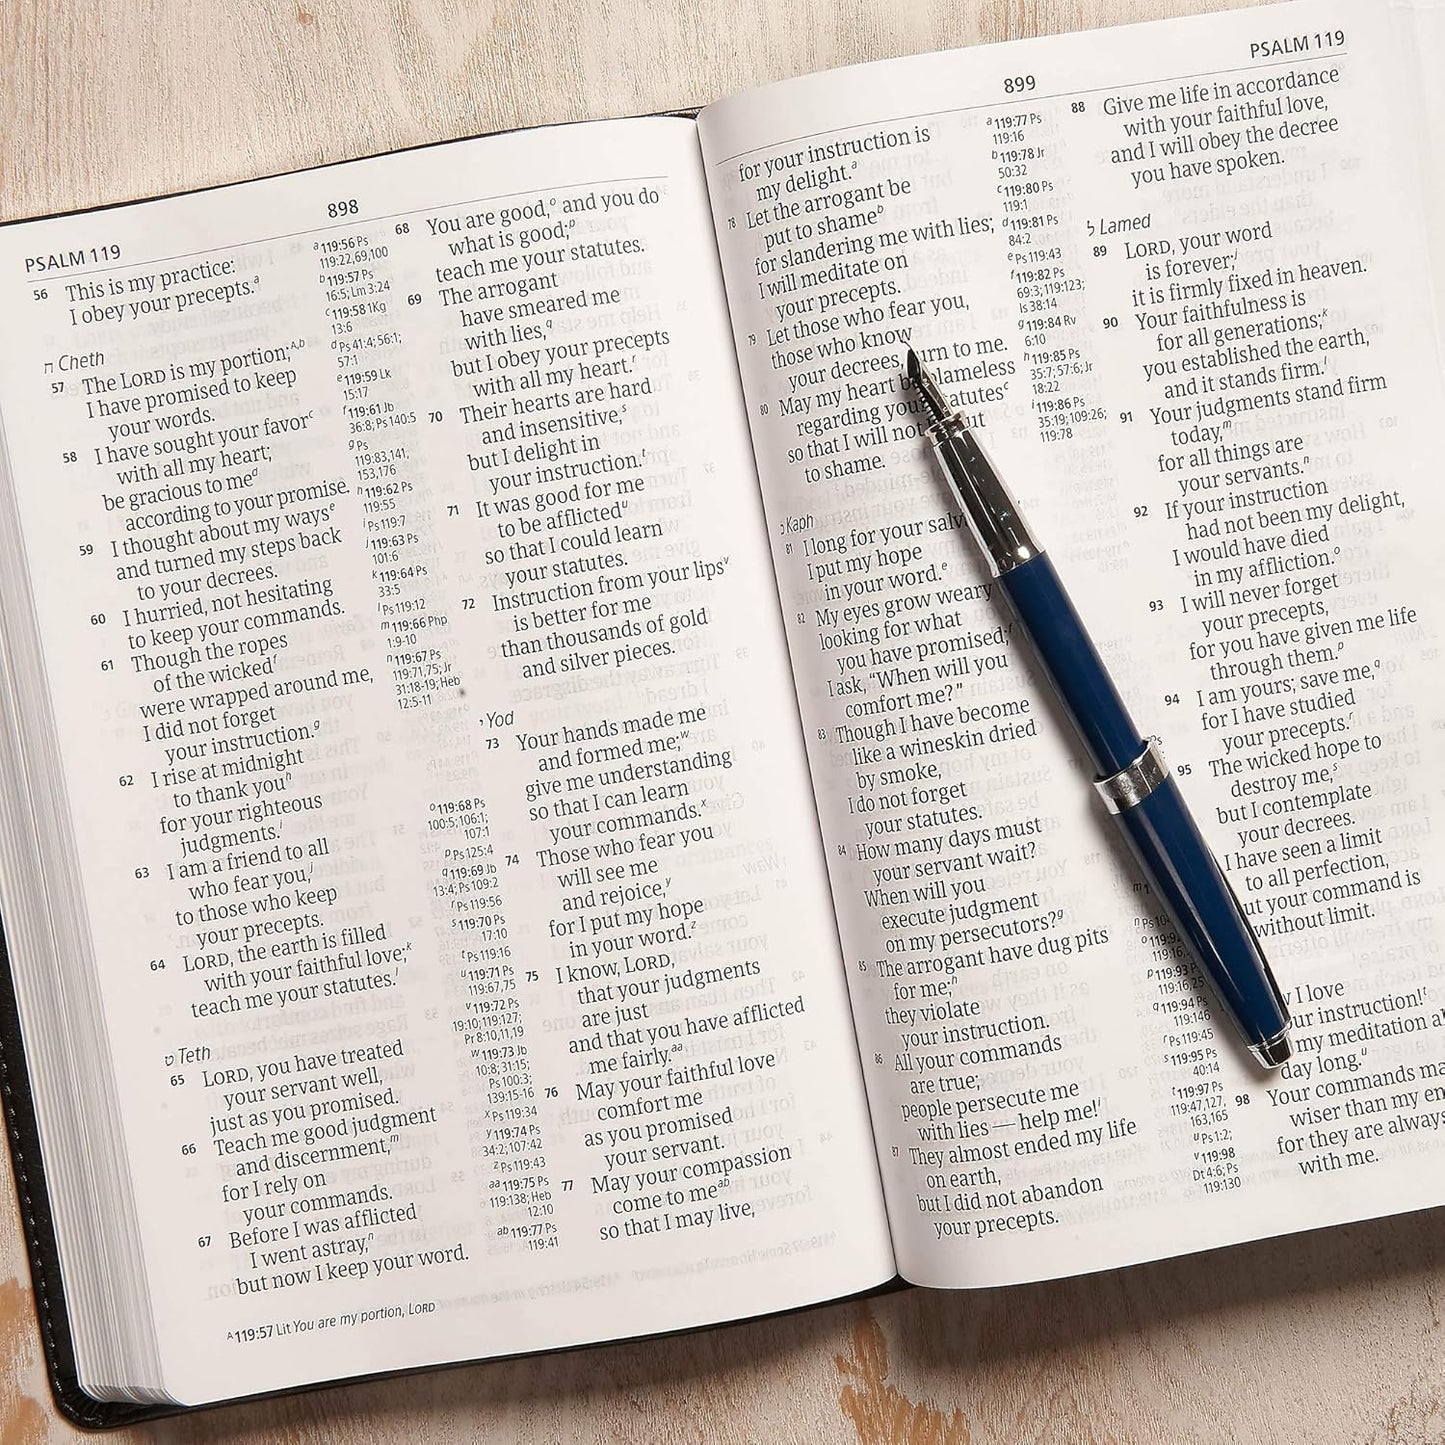 PSALM 119
898
56 This is my practice:
I obey your precepts.a
ח Cheth
57 The LORD is my portion;A,b
I have promised to keep
your words.
58 I have sought your favorc
with all my heart;
be gracious to med
according to your promise.
59 I thought about my wayse
and turned my steps back
to your decrees.
60 I hurried, not hesitating
to keep your commands.
61 Though the ropes
of the wickedf
were wrapped around me,
I did not forget
your instruction.g
62 I rise at midnight
to thank youh
for your righteous
judgments.i
63 I am a friend to all
who fear you,j
to those who keep
your precepts.
64 LORD, the earth is filled
with your faithful love;k
teach me your statutes.l
ט Teth
65 LORD, you have treated
your servant well,
just as you promised.
66 Teach me good judgment
and discernment,m
for I rely on
your commands.
67 Before I was afflicted
I went astray,n
but now I keep your word.
a119:56 Ps
119:22,69,100
b119:57 Ps
16:5; Lm 3:24
c119:58 1Kg
13:6
dPs 41:4; 56:1;
57:1
e119:59 Lk
15:17
f119:61 Jb
36:8; Ps 140:5
gPs
119:83,141,
153,176
h119:62 Ps
119:55
iPs 119:7
j119:63 Ps
101:6
k119:64 Ps
33:5
lPs 119:12
m119:66 Php
1:9-10
n119:67 Ps
119:71,75; Jr
31:18-19; Heb
12:5-11
o119:68 Ps
100:5; 106:1;
107:1
pPs 125:4
q119:69 Jb
13:4; Ps 109:2
rPs 119:56
s119:70 Ps
17:10
tPs 119:16
u119:71 Ps
119:67,75
v119:72 Ps
19:10; 119:127;
Pr 8:10,11,19
w119:73 Jb
10:8; 31:15;
Ps 100:3;
139:15-16
xPs 119:34
y119:74 Ps
34:2; 107:42
zPs 119:43
aa119:75 Ps
119:138; Heb
12:10
ab119:77 Ps
119:41
68 You are good,o and you do
what is good;p
teach me your statutes.
69 The arrogant
have smeared me
with lies,q
but I obey your precepts
with all my heart.r
70 Their hearts are hard
and insensitive,s
but I delight in
your instruction.t
71 It was good for me
to be afflictedu
so that I could learn
your statutes.
72 Instruction from your lipsv
is better for me
than thousands of gold
and silver pieces.
י Yod
73 Your hands made me
and formed me;w
give me understanding
so that I can learn
your commands.x
74 Those who fear you
will see me
and rejoice,y
for I put my hope
in your word.z
75 I know, LORD,
that your judgments
are just
and that you have afflicted
me fairly.aa
76 May your faithful love
comfort me
as you promised
your servant.
77 May your compassion
come to meab
so that I may live,
A119:57 Lit You are my portion, LORD
899
PSALM 119
for your instruction is
my delight.a
78 Let the arrogant be
put to shameb
for slandering me with lies;
I will meditate on
your precepts.
79 Let those who fear you,
those who know
your decrees, turn to me.
80 May my heart be blameless
regarding your statutesc
so that I will not be put
to shame.
כ Kaph
81 I long for your salv
I put my hope
in your word.e
82 My eyes grow weary
looking for what
you have promised;f
I ask, “When will you
comfort me?”
83 Though I have become
like a wineskin dried
by smoke,
I do not forget
your statutes.
84 How many days must
your servant wait?
When will you
execute judgment
on my persecutors?g
85 The arrogant have dug pits
for me;h
they violate
your instruction.
86 All your commands
are true;
people persecute me
with lies — help me!i
87 They almost ended my life
on earth,
but I did not abandon
your precepts.
a119:77 Ps
119:16
b119:78 Jr
50:32
c119:80 Ps
119:1
d119:81 Ps
84:2
ePs 119:43
f119:82 Ps
69:3; 119:123;
Is 38:14
g119:84 Rv
6:10
h119:85 Ps
35:7; 57:6; Jr
18:22
i119:86 Ps
35:19; 109:26;
119:78
nPs 10
o119:92
119:16,
p119:93 Ps
119:16,25
q119:94 Ps
119:146
rPs 119:45
s119:95 Ps
40:14
t119:97 Ps
119:47,127,
163,165
uPs 1:2;
v119:98
Dt 4:6; Ps
119:130
88 Give me life in accordance
with your faithful love,
and I will obey the decree
you have spoken.
ל Lamed
89 LORD, your word
is forever;j
it is firmly fixed in heaven.
90 Your faithfulness is
for all generations;k
you established the earth,
and it stands firm.l
91 Your judgments stand firm
today,m
for all things are
your servants.n
92 If your instruction
had not been my delight,
I would have died
in my affliction.o
93 I will never forget
your precepts,
for you have given me life
through them.p
94 I am yours; save me,q
for I have studied
your precepts.r
95 The wicked hope to
destroy me,s
but I contemplate
your decrees.
I have seen a limit
to all perfection,
ut your command is
without limit.
I love
our instruction!t
my meditation al
day long.u
98 Your commands ma
wiser than my en
for they are always
with me.